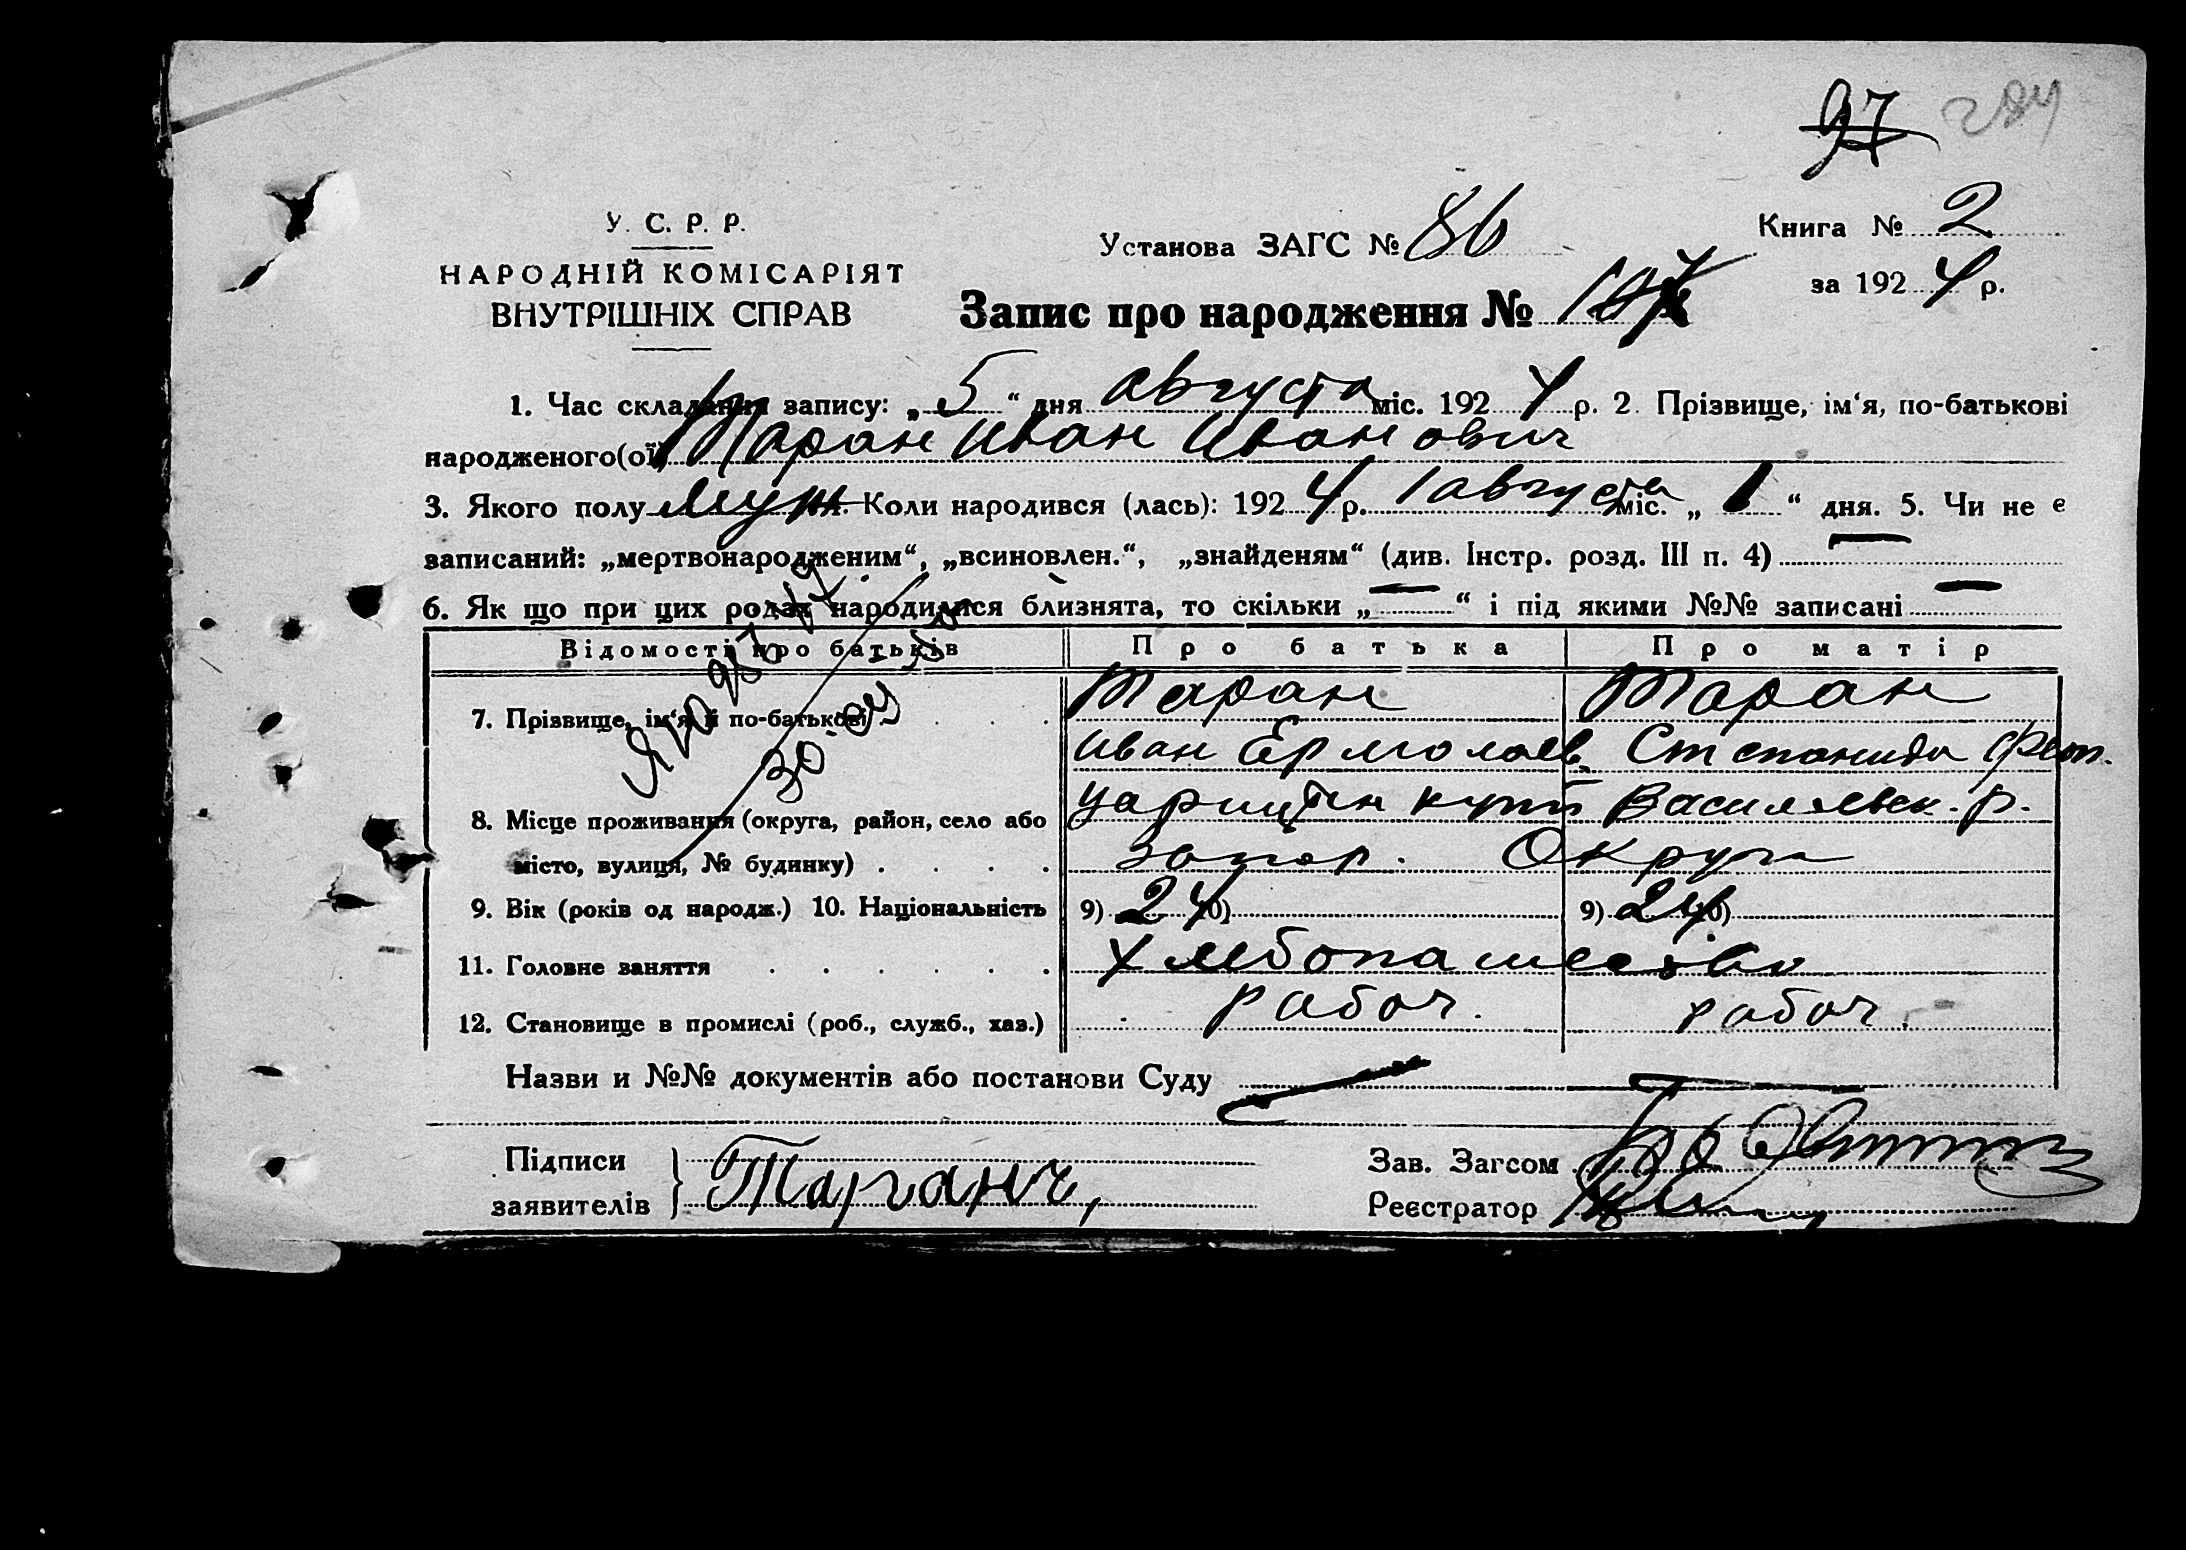 97 284
У. С. Р. Р.
НАРОДНІЙ КОМІСАРІЯТ
ВНУТРІШНІХ СПРАВ
Установа ЗАГС № 86
Книга № 2
за 1924 р.
Запис про народження № 107
1. Час складання запису: „5“ дня августа міс. 1924 р. 2. Прізвище, ім‘я, по-батькові
народженого(ої) Таран Иван Иванович
3. Якого полу муж. Коли народився (лась): 1924 р. 1 августа міс. „1“ дня. 5. Чи не є
записаний: „мертвонародженим“, „всиновлен.“, „знайденям“ (див. Інстр. розд. III п. 4) —
6. Як що при цих родах народилися близнята, то скільки „—“ і під якими №№ записані —
Відомості про батьків Про батька Про матір
7. Прізвище, ім‘я й по-батькові Таран Таран
Иван Ермолаев. Степанида Феоп.
8. Місце проживання (округа, район, село або Василевск. р.
місто, вулиця, № будинку) Запор. Округа
9. Вік (років од народж.) 10. Національність 9) 24 10) 9) 24 10)
11. Головне заняття Хлебопашество
12. Становище в промислі (роб., служб., хаз.) рабоч. рабоч.
Назви и №№ документів або постанови Суду
Підписи
заявителів
Зав. Загсом
Реєстратор